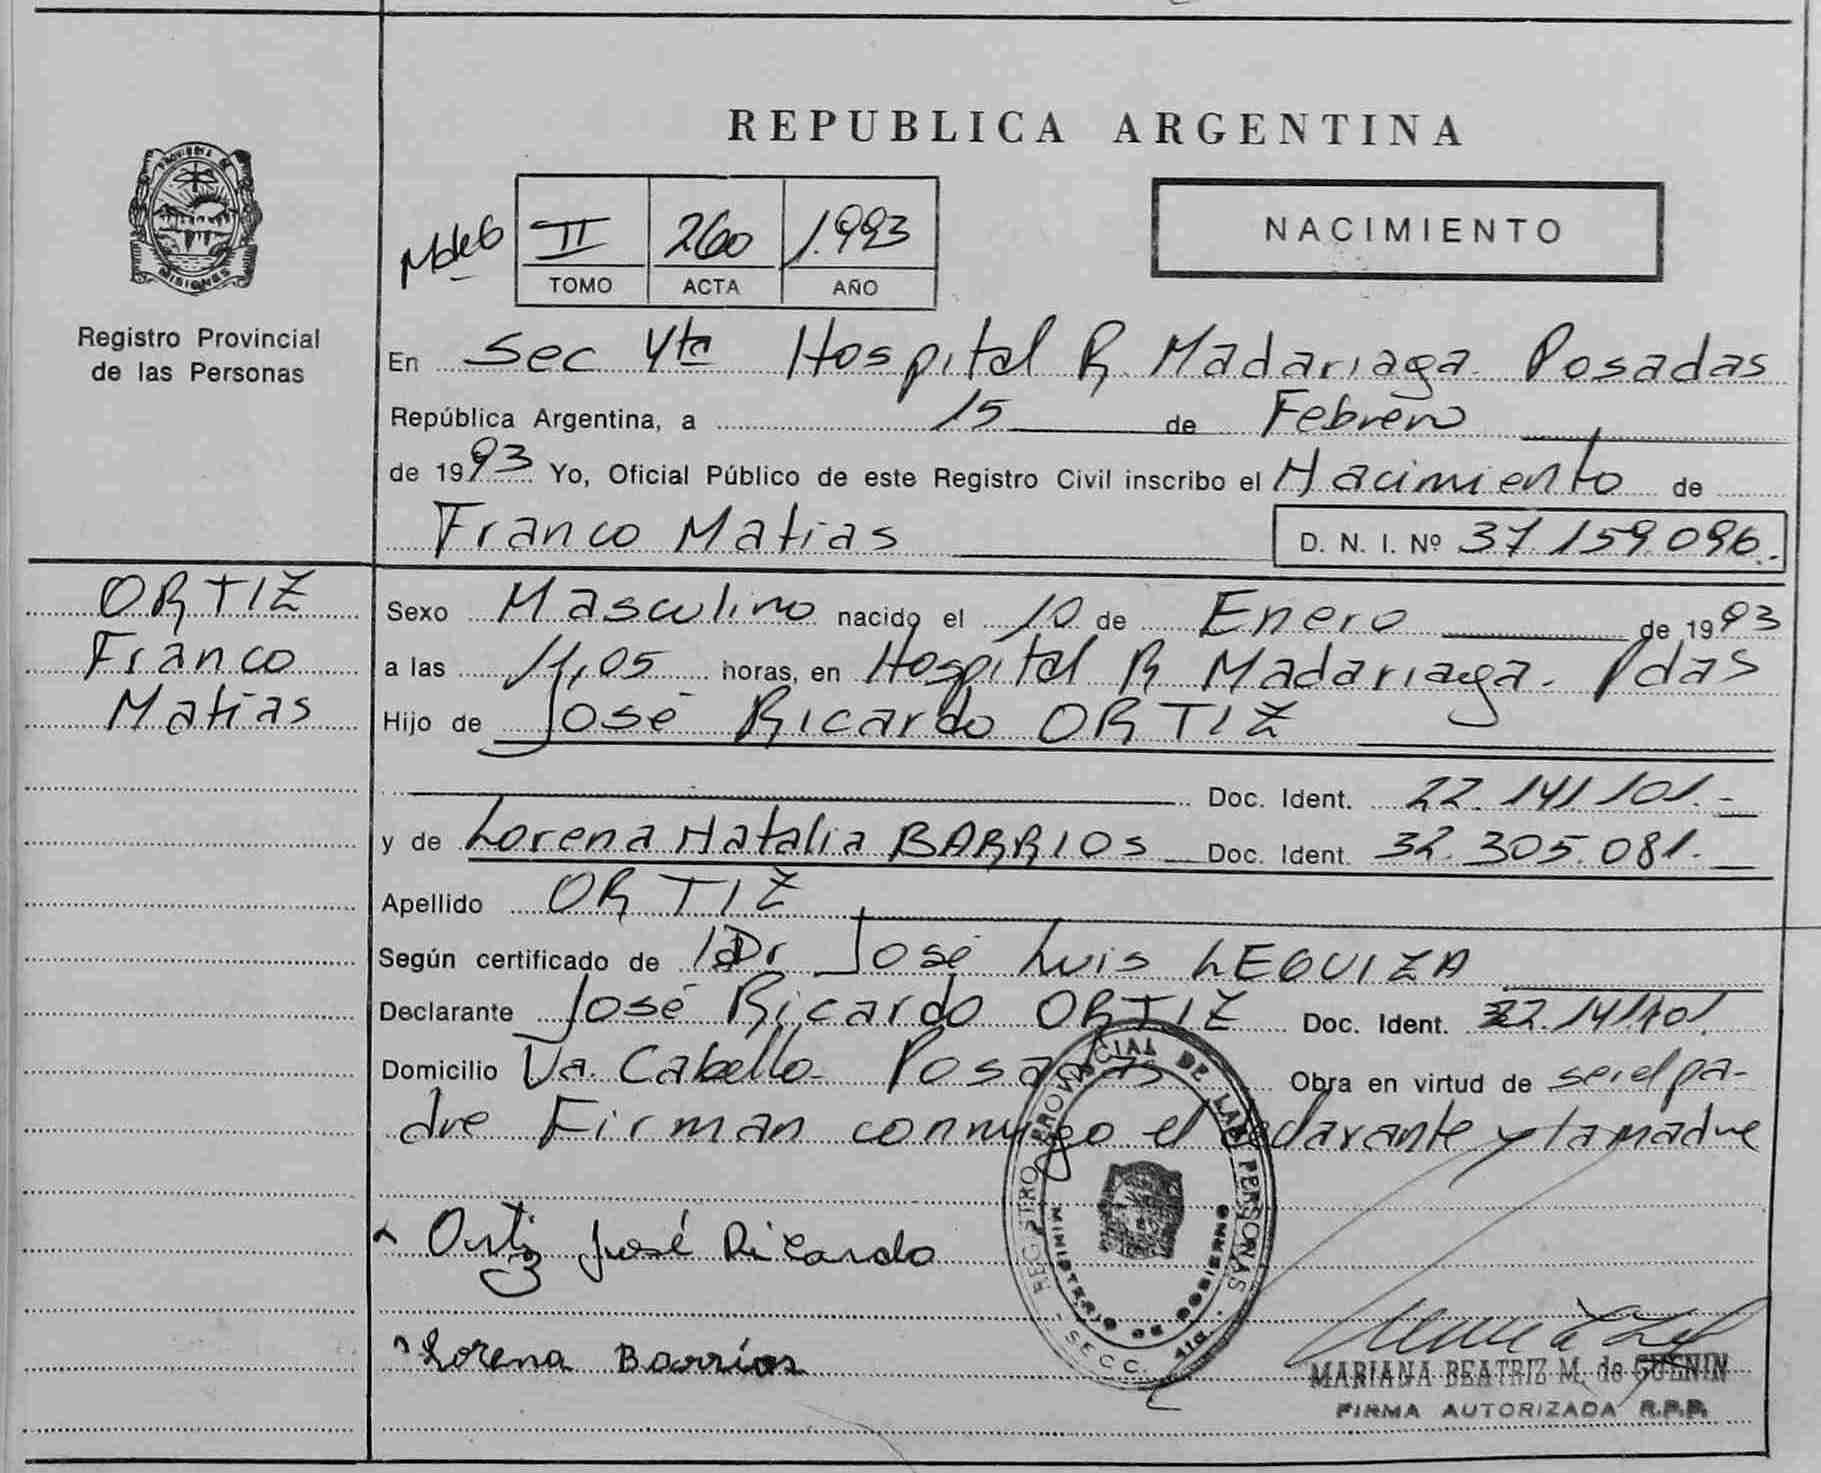 REPUBLICA ARGENTINA
PROVINCIA DE
MISIONES
Registro Provincial
de las Personas
II 260 1.993
TOMO ACTA AÑO
NACIMIENTO
En Sec 4ta Hospital R Madariaga. Posadas
República Argentina, a 15 de Febrero
de 1993 Yo, Oficial Público de este Registro Civil inscribo el Nacimiento de
Franco Matias D. N. I. Nº 37.159.096.
ORTIZ
Franco
Matias
Sexo Masculino nacido el 10 de Enero de 1993
a las 11,05 horas, en Hospital R Madariaga. Pdas
Hijo de José Ricardo ORTIZ
Doc. Ident. 22.141.101.-
y de Lorena Natalia BARRIOS Doc. Ident. 32.305.081.
Apellido ORTIZ
Según certificado de Dr José Luis LEGUIZA
Declarante José Ricardo ORTIZ Doc. Ident. 22.141.101.
Domicilio Va. Cabello. Posadas Obra en virtud de ser el pa-
dre Firman conmigo el declarante y la madre
Ortiz José Ricardo
Lorena Barrios
REGISTRO PROVINCIAL DE LAS PERSONAS
MINISTERIO DE GOBIERNO
SECC. 4ta
MARIANA BEATRIZ M. de GUENIN
FIRMA AUTORIZADA R.P.P.